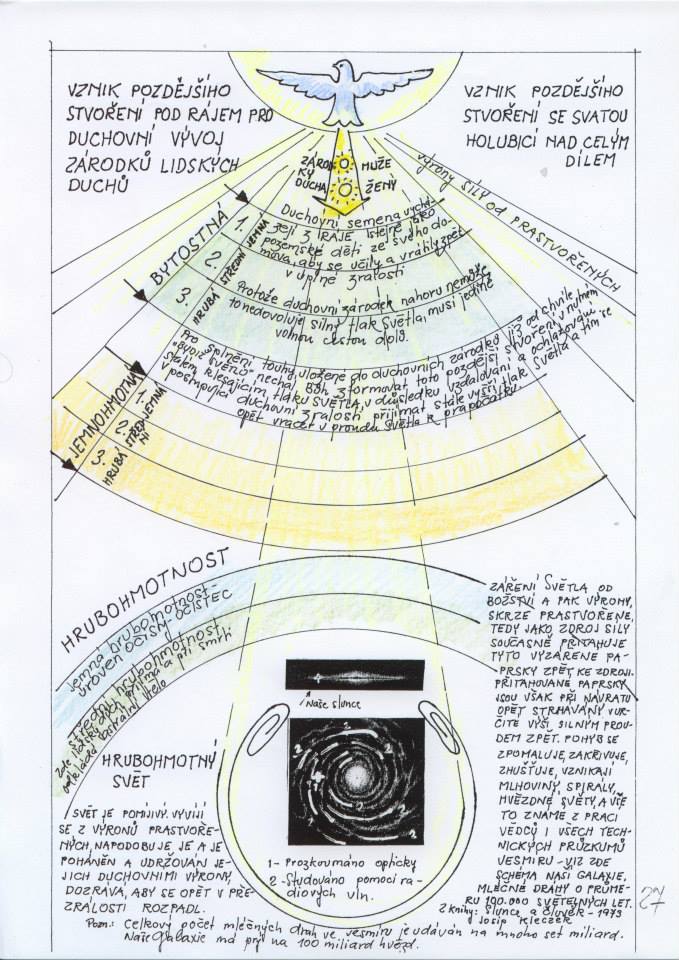 VZNIK POZDĚJŠÍHO
STVOŘENÍ POD RÁJEM PRO
DUCHOVNÍ VÝVOJ
ZÁRODKŮ LIDSKÝCH
DUCHŮ
VZNIK POZDĚJŠÍHO
STVOŘENÍ SE SVATOU
HOLUBICÍ NAD CELÝM
DÍLEM
ZÁROD
KY
DUCHA
MUŽE
ŽENY
výrony SÍLY OD PRASTVOŘENÝCH
BYTOSTNÁ
1. JEMNÁ
2. STŘEDNÍ
3. HRUBÁ
Duchovní semena vychá-
zejí z RÁJE stejně jako
pozemské děti ze svého do-
mova, aby se učily a vrátily zpět
v úplné zralosti
Protože duchovní zárodek nahoru nemůže,
to nedovoluje silný tlak Světla, musí jedině
volnou cestou dolů.
Pro splnění touhy, uložené do duchovních zárodků již od chvíle
"BUDIŽ SVĚTLO" nechal Bůh zformovat toto pozdější stvoření v nutném
stálém klesajícím tlaku SVĚTLA, v důsledku vzdalování a ochlazování
v postupující duchovní zralosti přijímat stále vyšší tlak Světla a tím se
opět vracet v proudu Světla k prapočátku.
JEMNOHMOTNÁ
1. JEMNÁ
2. STŘED
NÍ
3. HRUBÁ
HRUBOHMOTNOST
Jemná hrubohmotnost-
úroveň OČISTY-OČISTEC
střední hrubohmotnost
Zde zárodek duch přijímá a při smrti
odkládá astrální tělo
ZÁŘENÍ SVĚTLA OD
BOŽSTVÍ A PAK VÝRONY,
SKRZE PRASTVOŘENÉ,
TEDY JAKO ZDROJ SÍLY
SOUČASNĚ PŘITAHUJE
TYTO VYZÁŘENÉ PA-
PRSKY ZPĚT, KE ZDROJI.
PŘITAHOVANÉ PAPRSKY
JSOU VŠAK PŘI NÁVRATU
OPĚT STRHÁVÁNY V UR-
ČITÉ VÝŠI, SILNÝM PROU-
DEM ZPĚT. POHYB SE
ZPOMALUJE, ZAKŘIVUJE,
ZHUŠŤUJE, VZNIKAJÍ
MLHOVINY, SPIRÁLY,
HVĚZDNÉ SVĚTY, A VŠE
TO ZNÁME Z PRACÍ
VĚDCŮ I VŠECH TECH-
NICKÝCH PRŮZKUMŮ
VESMÍRU - VIZ ZDE
SCHÉMA NAŠÍ GALAXIE,
MLÉČNÉ DRÁHY O PRŮMĚ-
RU 100.000 SVĚTELNÝCH LET.
Z knihy: Slunce a člověk - 1973
Josip Kleczek
Naše slunce
HRUBOHMOTNÝ
SVĚT
SVĚT JE POMÍJIVÝ. VYVÍJÍ
SE Z VÝRONŮ PRASTVOŘE-
NÝCH, NAPODOBUJE JE A JE
POHÁNĚN A UDRŽOVÁN JE-
JICH DUCHOVNÍMI VÝRONY,
DOZRÁVÁ, ABY SE OPĚT V PŘE-
ZRÁLOSTI ROZPADL.
2
2
2
2
2
1
1 - Prozkoumáno opticky
2 - Studováno pomocí ra-
diových vln.
27
Pozn.: Celkový počet mléčných drah ve vesmíru je udáván na mnoho set miliard.
Naše Galaxie má prý na 100 miliard hvězd.